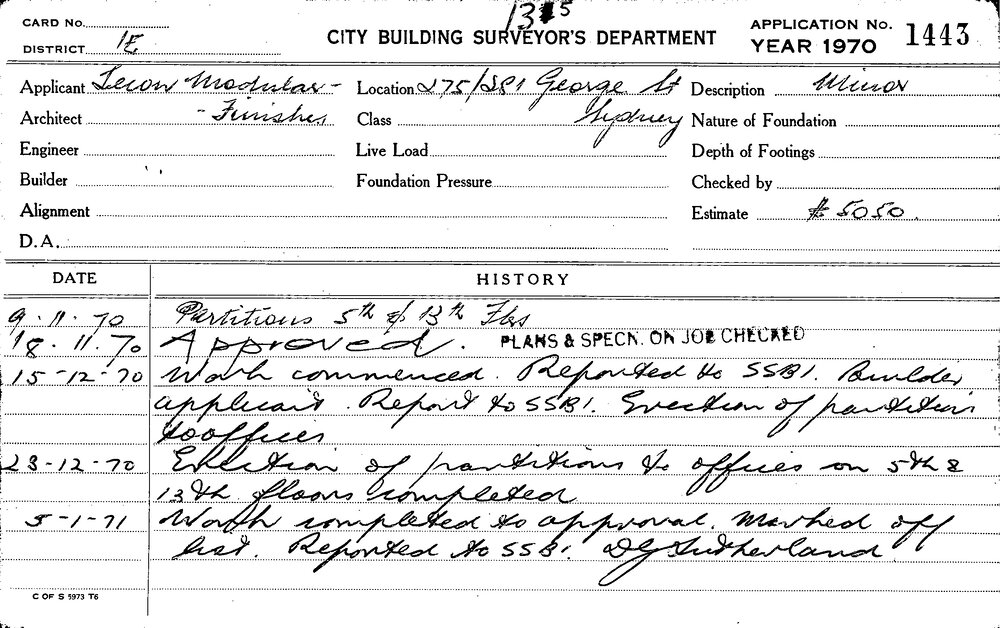 CARD No.
1315
APPLICATION No. 1443
DISTRICT 1E
CITY BUILDING SURVEYOR'S DEPARTMENT
YEAR 1970
Applicant Tecon Modular - Location 275/281 George St Description Minor
Architect - Finishes Class Sydney Nature of Foundation
Engineer Live Load Depth of Footings
Builder " Foundation Pressure Checked by
Alignment Estimate $5050.
D.A.
DATE HISTORY
9.11.70 Partitions 5th & 13th Flrs
18.11.70 Approved. PLANS & SPECN. ON JOB CHECKED
15-12-70 Work commenced. Reported to SSB1. Builder
applicant. Report to SSB1. Erection of partitions
to offices
23-12-70 Erection of partitions to offices on 5th &
13th floors completed
5-1-71 Work completed to approval. Marked off
list. Reported to SSB1. DG Sutherland
C OF S 5973 T6